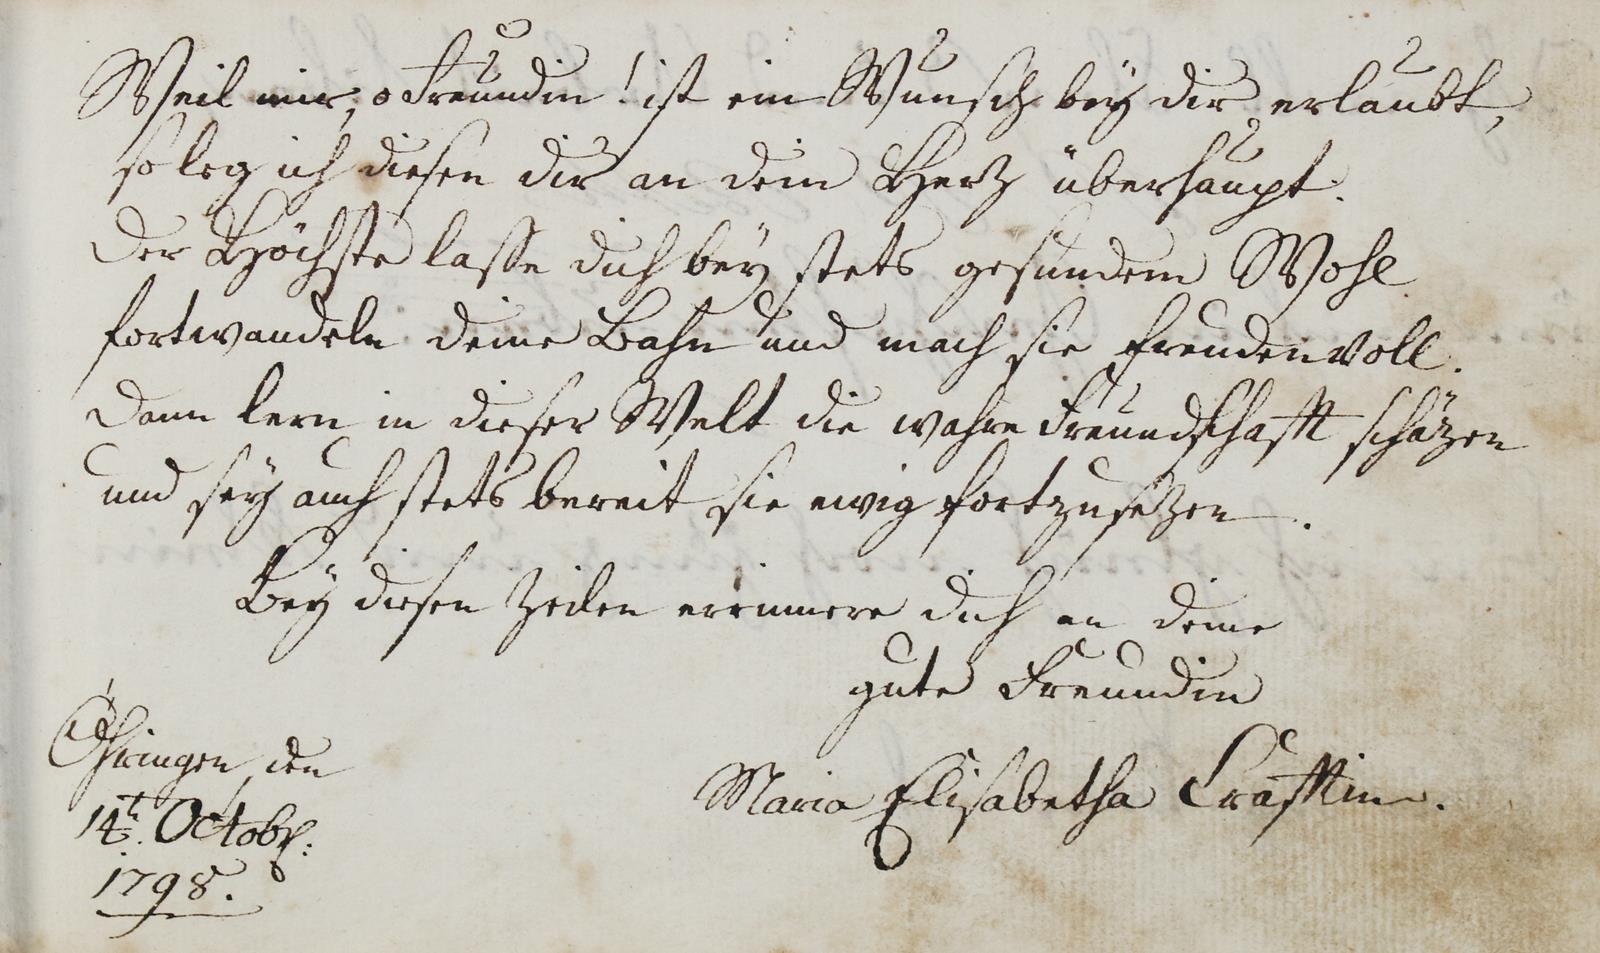 Weil mir, o Freundin! ist ein Wunsch bey dir erlaubt,
so leg ich diesen dir an dein Herz überhaupt.
Der Höchste lasse dich bey stets gesundem Wohl
fortwandeln deine Bahn und mach sie freudenvoll.
Dann lern in dieser Welt die wahre Freundschafft schäzen
und sey auch stets bereit sie ewig fortzusezen.
Bey diesen Zeilen erinnere dich an deine
gute Freundin
Maria Elisabetha Crafftin.
Öhringen, den
14t. Octobr:
1798.